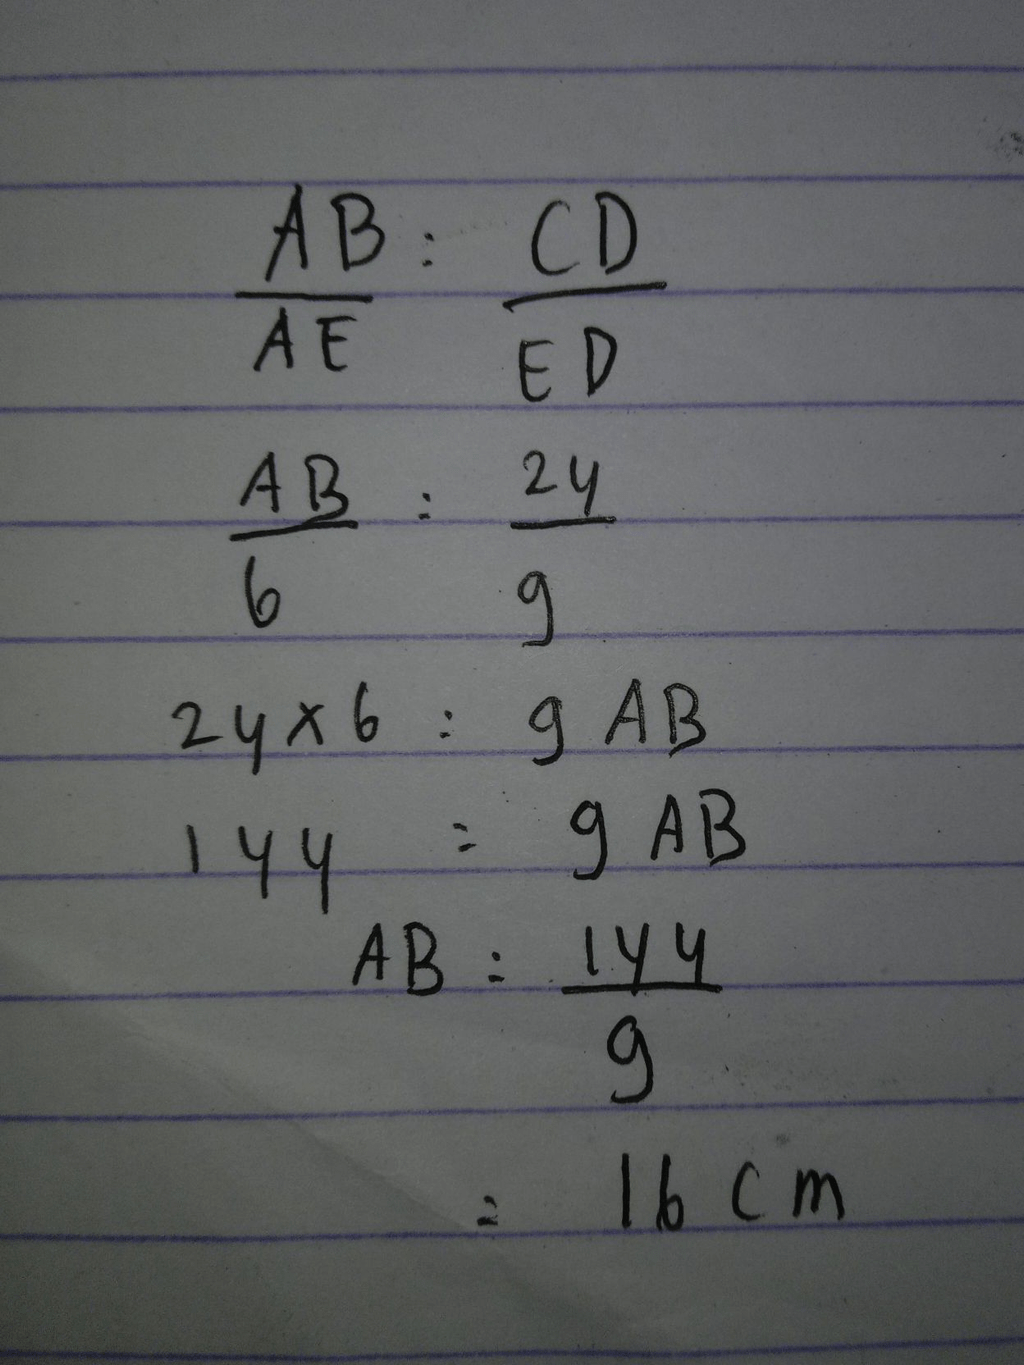 AB = CD
AE ED
AB = 24
6 9
24 × 6 = 9 AB
144 = 9 AB
AB = 144
9
= 16 cm